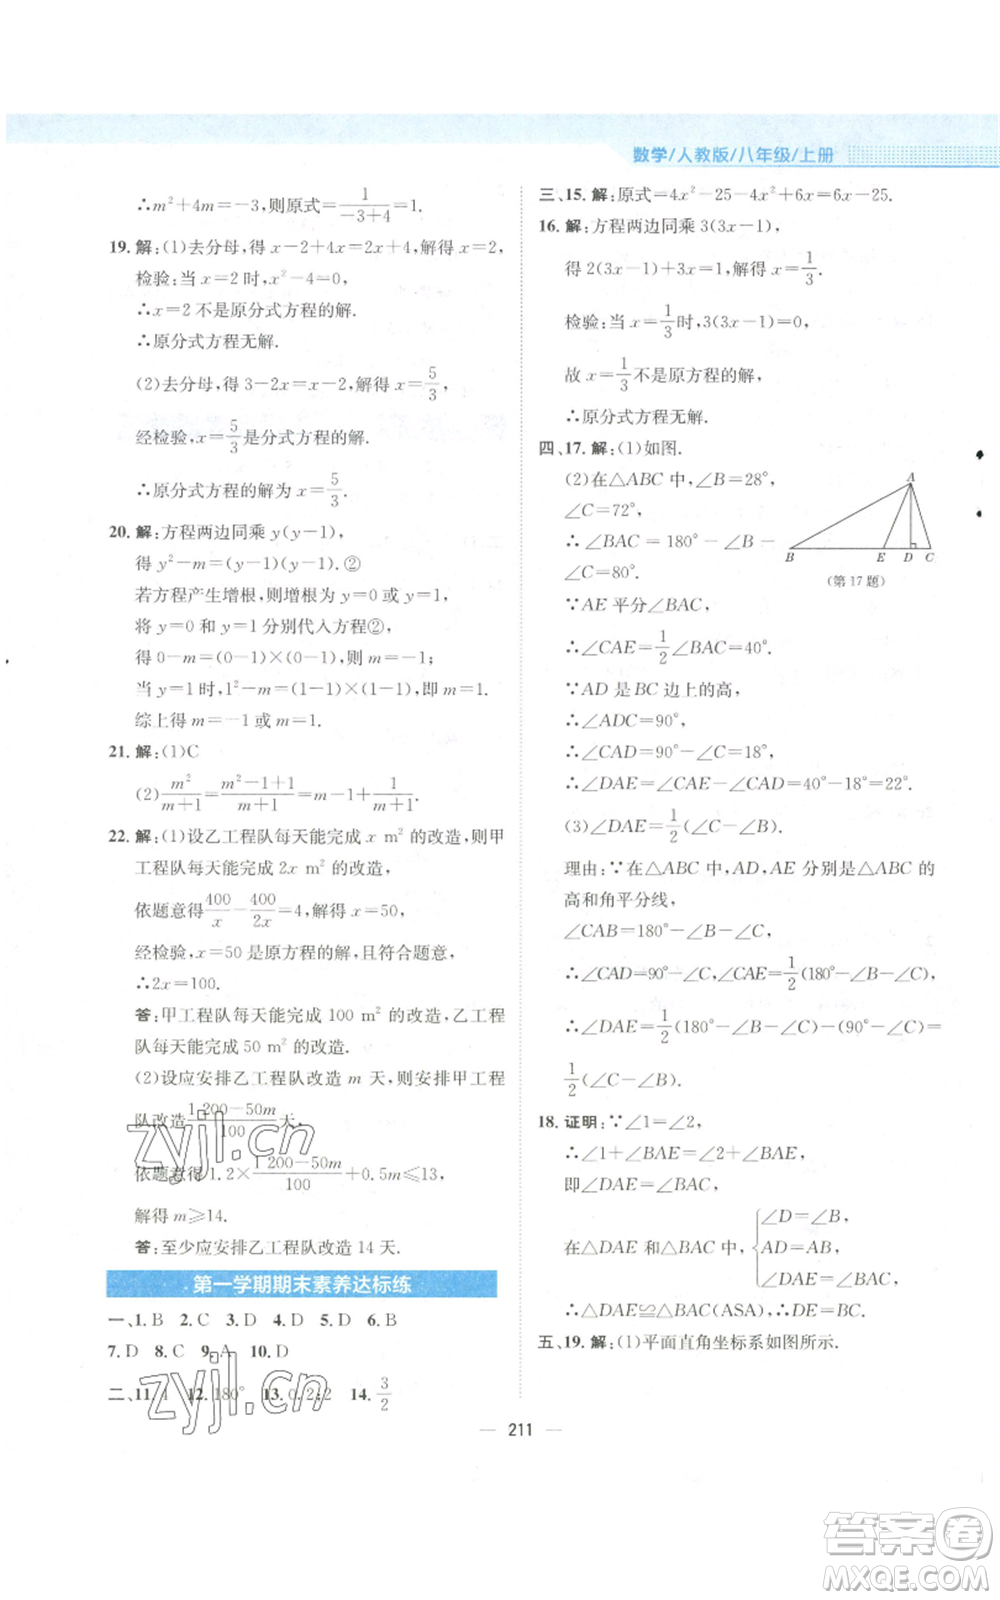 数学/人教版/八年级/上册
∴m²+4m=-3,则原式=1/(-3+4)=1.
19. 解:(1)去分母,得 x-2+4x=2x+4,解得 x=2,
检验:当 x=2 时,x²-4=0,
∴x=2 不是原分式方程的解.
∴原分式方程无解.
(2)去分母,得 3-2x=x-2,解得 x=5/3,
经检验,x=5/3是分式方程的解,
∴原分式方程的解为 x=5/3.
20. 解:方程两边同乘 y(y-1),
得 y²-m=(y-1)². ②
若方程产生增根,则增根为 y=0 或 y=1,
将 y=0 和 y=1 分别代入方程②,
得 0-m=(0-1)×(0-1),则 m=-1;
当 y=1 时,1²-m=(1-1)×(1-1),即 m=1.
综上得 m=-1 或 m=1.
21. 解:(1)C
(2)m²/(m+1)=(m²-1+1)/(m+1)=m-1+1/(m+1).
22. 解:(1)设乙工程队每天能完成 x m² 的改造,则甲
工程队每天能完成 2x m² 的改造,
依题意得400/x-400/2x=4,解得 x=50,
经检验,x=50 是原方程的解,且符合题意,
∴2x=100.
答:甲工程队每天能完成 100 m² 的改造,乙工程
队每天能完成 50 m² 的改造.
(2)设应安排乙工程队改造 m 天,则安排甲工程
队改造(1 200-50m)/100天,
依题意得 1.2×(1 200-50m)/100+0.5m≤13,
解得 m≥14.
答:至少应安排乙工程队改造 14 天.
第一学期期末素养达标练
一、1. B 2. C 3. D 4. D 5. D 6. B
7. D 8. C 9. A 10. D
二、11. 1 12. 180° 13. 0,2;2 14. 3/2
三、15. 解:原式=4x²-25-4x²+6x=6x-25.
16. 解:方程两边同乘 3(3x-1),
得 2(3x-1)+3x=1,解得 x=1/3.
检验:当 x=1/3时,3(3x-1)=0,
故 x=1/3不是原方程的解,
∴原分式方程无解.
四、17. 解:(1)如图.
(2)在△ABC 中,∠B=28°,
∠C=72°,
∴∠BAC=180°-∠B-
∠C=80°.
∵AE 平分∠BAC,
A
B E D C
(第 17 题)
∴∠CAE=1/2∠BAC=40°.
∵AD 是 BC 边上的高,
∴∠ADC=90°,
∴∠CAD=90°-∠C=18°,
∴∠DAE=∠CAE-∠CAD=40°-18°=22°.
(3)∠DAE=1/2(∠C-∠B).
理由:∵在△ABC 中,AD,AE 分别是△ABC 的
高和角平分线,
∠CAB=180°-∠B-∠C,
∴∠CAD=90°-∠C,∠CAE=1/2(180°-∠B-∠C),
∴∠DAE=1/2(180°-∠B-∠C)-(90°-∠C)=
1/2(∠C-∠B).
18. 证明:∵∠1=∠2,
∴∠1+∠BAE=∠2+∠BAE,
即∠DAE=∠BAC,
在△DAE 和△BAC 中,{∠D=∠B, AD=AB, ∠DAE=∠BAC,
∴△DAE≌△BAC(ASA),∴DE=BC.
五、19. 解:(1)平面直角坐标系如图所示.
— 211 —
zyjl.cn
zyjl.cn
答案卷
MXQE.COM